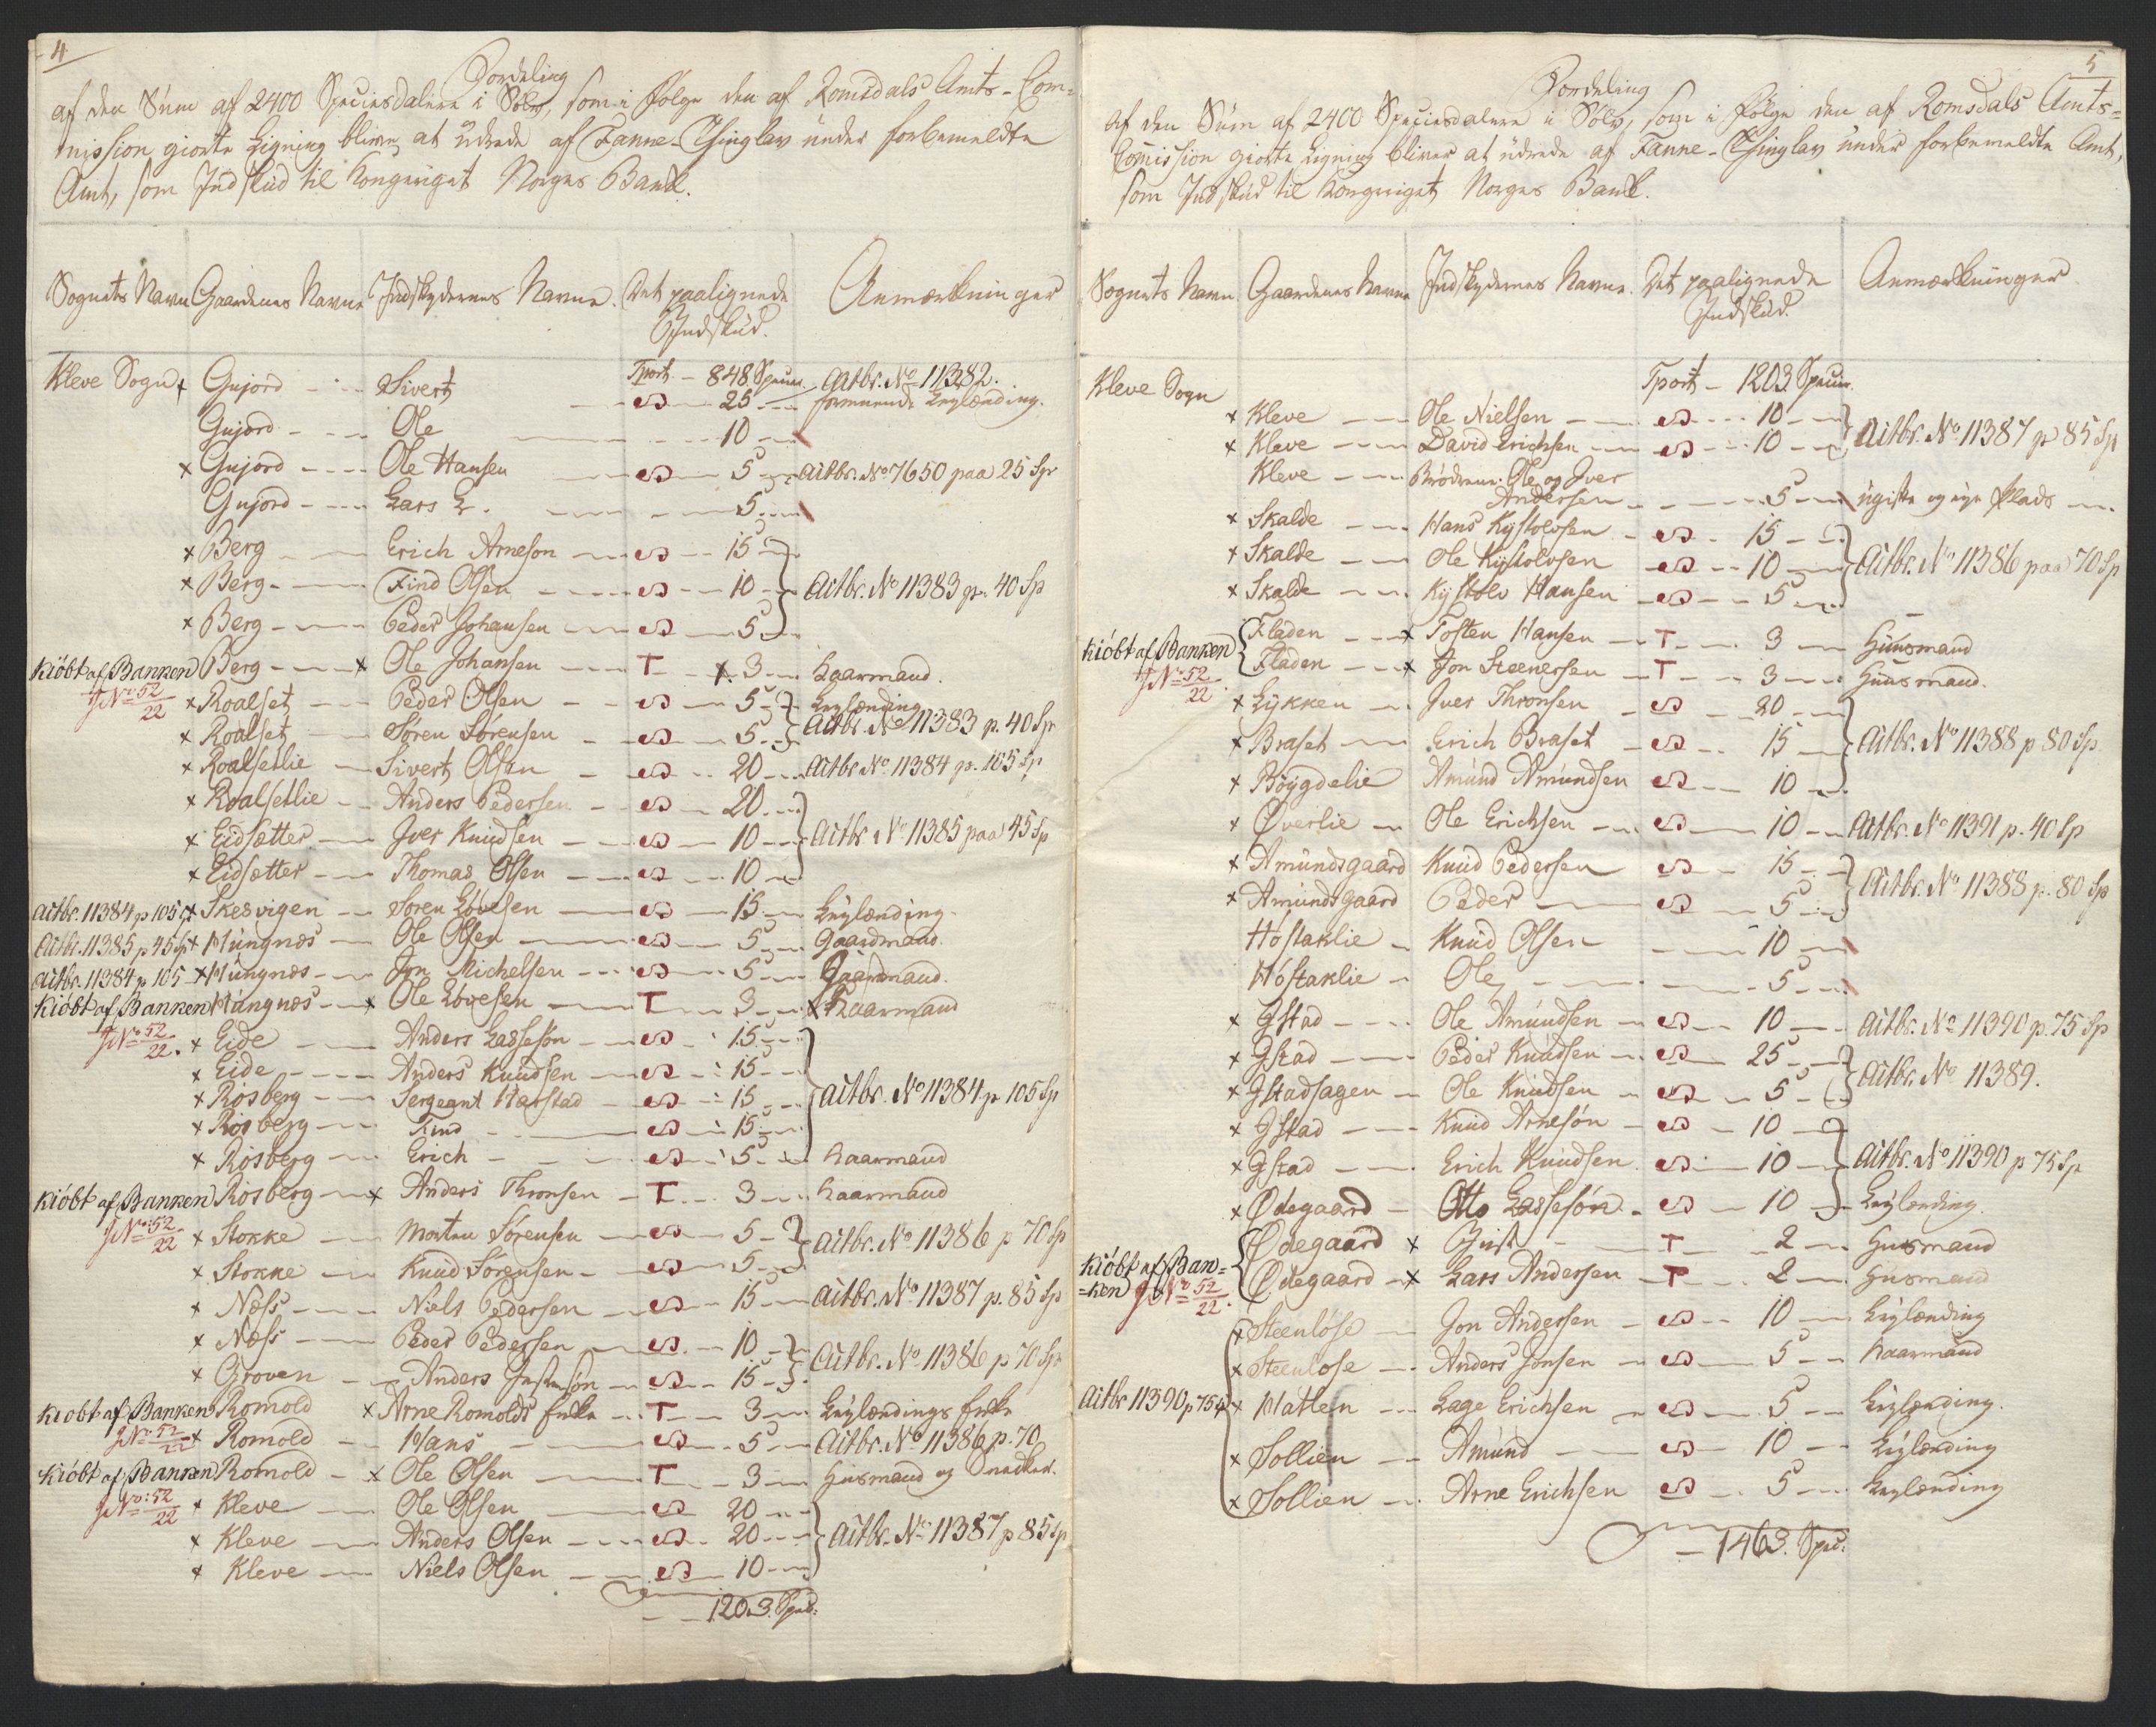 4
Fordeling
af den Sum af 2400 Speciesdalere i Sølv, som i Følge den af Romsdals Amts-Com-
mission giorte Ligning bliver at udrede af Fanne-Thinglav under forbemeldte
Amt, som Indskud til Kongeriget Norges Bank.
Sognets Navn Gaardenes Navne Indskydernes Navne. Det paalignede Indskud. Anmærkninger
Kleve Sogn Tport. - 848 Specier. Actbr. No 11382.
x Gujord Sivert S 25 formuende Leylænding.
Gujord Ole 10
x Gujord Ole Hansen S 5 Actbr. No 7650 paa 25 Sp
Gujord Lars L. 5
x Berg Erich Arneson S 15
x Berg Find Olsen S 10 Actbr. No 11383 p. 40 Sp
x Berg Peder Johansen S 5
Kiöbt af Banken Berg x Ole Johansen T x. 3 Haarmand.
JNo 52/22 x Roalset Peder Olsen S 5 Leylænding
x Roalset Søren Sørensen S 5 Actbr. No 11383 p. 40 Sp
x Roalsetlie Sivert Olsen S 20 Actbr No 11384 p. 105 Sp
x Roalsetlie Anders Pedersen S 20
x Eidsætter Iver Knudsen S 10 Actbr. No 11385 paa 45 Sp
x Eidsætter Thomas Olsen S 10
Actbr. 11384 p 105 x Skesvigen Søren Lovesen S 15 Leylænding.
Actbr. 11385 p 45 Sp x Hungnæs Ole Olsen S 5 Gaardmand.
Actbr. 11384 p 105 x Hungnæs Jon Michelsen S 5 Gaardmand.
Kiöbt af Banken Hungnæs x Ole Lovesen T 3 x Haarmand
JNo 52/22. x Eide Anders Lasseson S 15
x Eide Anders Knudsen S 15
x Rösberg Sergeant Harstad S 15 Actbr. No 11384 p 105 Sp
x Rösberg Find S 15
x Rösberg Erich S 5 Haarmand
Kiöbt af Banken Rösberg x Anders Thronsen T 3 Haarmand
JNo 52/22 x Stokke Morten Sørensen S 5 Actbr. No 11386 p 70 Sp
x Stokke Knud Sørensen S 5
x Næss Niels Pedersen S 15 Actbr. No 11387 p. 85 Sp
x Næss Peder Pedersen S 10 Actbr. No 11386 p 70 Sp
x Groven Anders S 15
Kiöbt af Banken Romold x Arne Romolds Enke T 3 Leylændings Enke
JNo 52/22 x Romold Hans S 5 Actbr. No 11386 p. 70
Kiöbt af Banken Romold x Ole Olsen T 3 Husmand og Snedker.
JNo: 52/22 x Kleve Ole Olsen S 20
x Kleve Anders Olsen S 20 Actbr. No 11387 p 85 Sp
x Kleve Niels Olsen S 10
1203. Spec:
5
Fordeling
af den Sum af 2400 Speciesdalere i Sølv, som i Følge den af Romsdals Amts-
Comission giorte Ligning bliver at udrede af Fanne-Thinglav under forbemeldte Amt,
som Indskud til Kongeriget Norges Bank.
Sognets Navn. Gaardenes Navne Indskydernes Navne. Det paalignede Indskud. Anmærkninger.
Kleve Sogn Tport - 1203. Specier.
x Kleve Ole Nielsen S 10
x Kleve David Erichsen S 10 Actbr. No 11387 p 85 Sp
Kleve Brødrene Ole og Iver
Andersen 5 ugifte og eye Plads
x Skalde Hans Kystolvsen S 15
x Skalde Ole Kystolvsen S 10 Actbr. No 11386 paa 70 Sp
x Skalde Kystolv Hansen S 5
Kiöbt af Banken Fladen x Tosten Hansen T 3 Huusmand
JNo 52/22. Fladen x Jon Steenersen T 3 Huusmand.
x Lykken Iver Thronsen S 20
x Braset Erich Braset S 15 Actbr. No 11388 p 80 Sp
x Böygdelie Amund Amundsen S 10
x Överlie Ole Erichsen S 10 Actbr. No 11391 p. 40 Sp
x Amundsgaard Knud Pedersen S 15 Actbr. No 11388 p. 80 Sp
x Amundsgaard Peder S 5
Höstaklie Knud Olsen 10
Höstaklie Ole 5
x Istad Ole Amundsen S 10 Actbr. No 11390 p. 75 Sp
x Istad Peder Knudsen S 25 Actbr. No 11389.
x Istadsagen Ole Knudsen S 5
x Istad Knud Arnesön S 10
x Istad Erich Knudsen S 10 Actbr. No 11390 p 75 Sp
x Ödegaard Otto Lassesön S 10 Leylænding.
Kiöbt af Ban= Ödegaard x T 2 Husmand
=ken JNo 52/22. Ödegaard x Lars Andersen T 2 Husmand
x Steenlöse Jon Andersen S 10 Leylænding
x Steenlöse Anders Jonsen S 5 Haarmand
Actbr 11390 p 75 Sp x Hatlen Lage Erichsen S 5 Leylænding.
x Sollien Amund S 10 Leylænding
x Sollien Arne Erichsen S 5 Leylænding
1463. Spec: